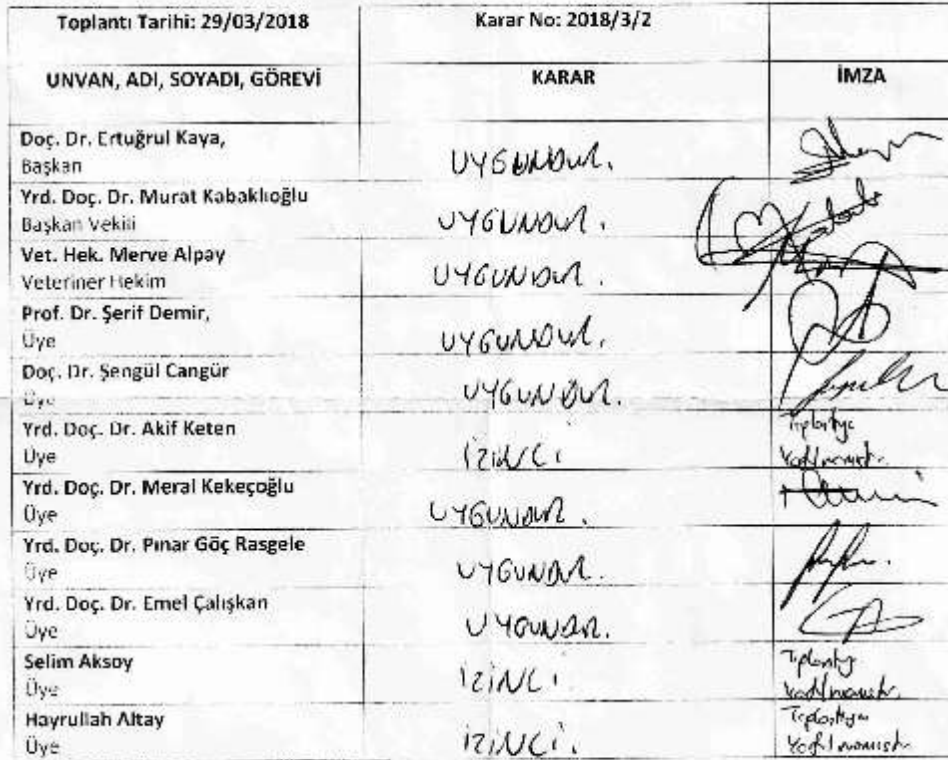 Toplantı Tarihi: 29/03/2018 Karar No: 2018/3/2
UNVAN, ADI, SOYADI, GÖREVİ KARAR İMZA
Doç. Dr. Ertuğrul Kaya,
Başkan UYGUNDUR.
Yrd. Doç. Dr. Murat Kabaklıoğlu
Başkan Vekili UYGUNDUR.
Vet. Hek. Merve Alpay
Veteriner Hekim UYGUNDUR.
Prof. Dr. Şerif Demir,
Üye UYGUNDUR.
Doç. Dr. Şengül Cangür
Üye UYGUNDUR.
Yrd. Doç. Dr. Akif Keten Toplantıya
Üye İZİNLİ Katılmamıştır.
Yrd. Doç. Dr. Meral Kekeçoğlu
Üye UYGUNDUR.
Yrd. Doç. Dr. Pınar Göç Rasgele
Üye UYGUNDUR.
Yrd. Doç. Dr. Emel Çalışkan
Üye UYGUNDUR.
Selim Aksoy Toplantıya
Üye İZİNLİ. Katılmamıştır.
Hayrullah Altay Toplantıya
Üye İZİNLİ. Katılmamıştır.